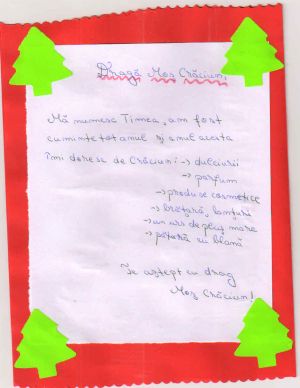 Dragă Moș Crăciun,
Mă numesc Timea, am fost
cuminte tot anul și anul acesta
îmi doresc de Crăciun: → dulciurii
→ parfum
→ produse cosmetice
→ brățară, lănțuri
→ un urs de pluș mare
→ pătură cu blană
Te aștept cu drag
Moș Crăciun!